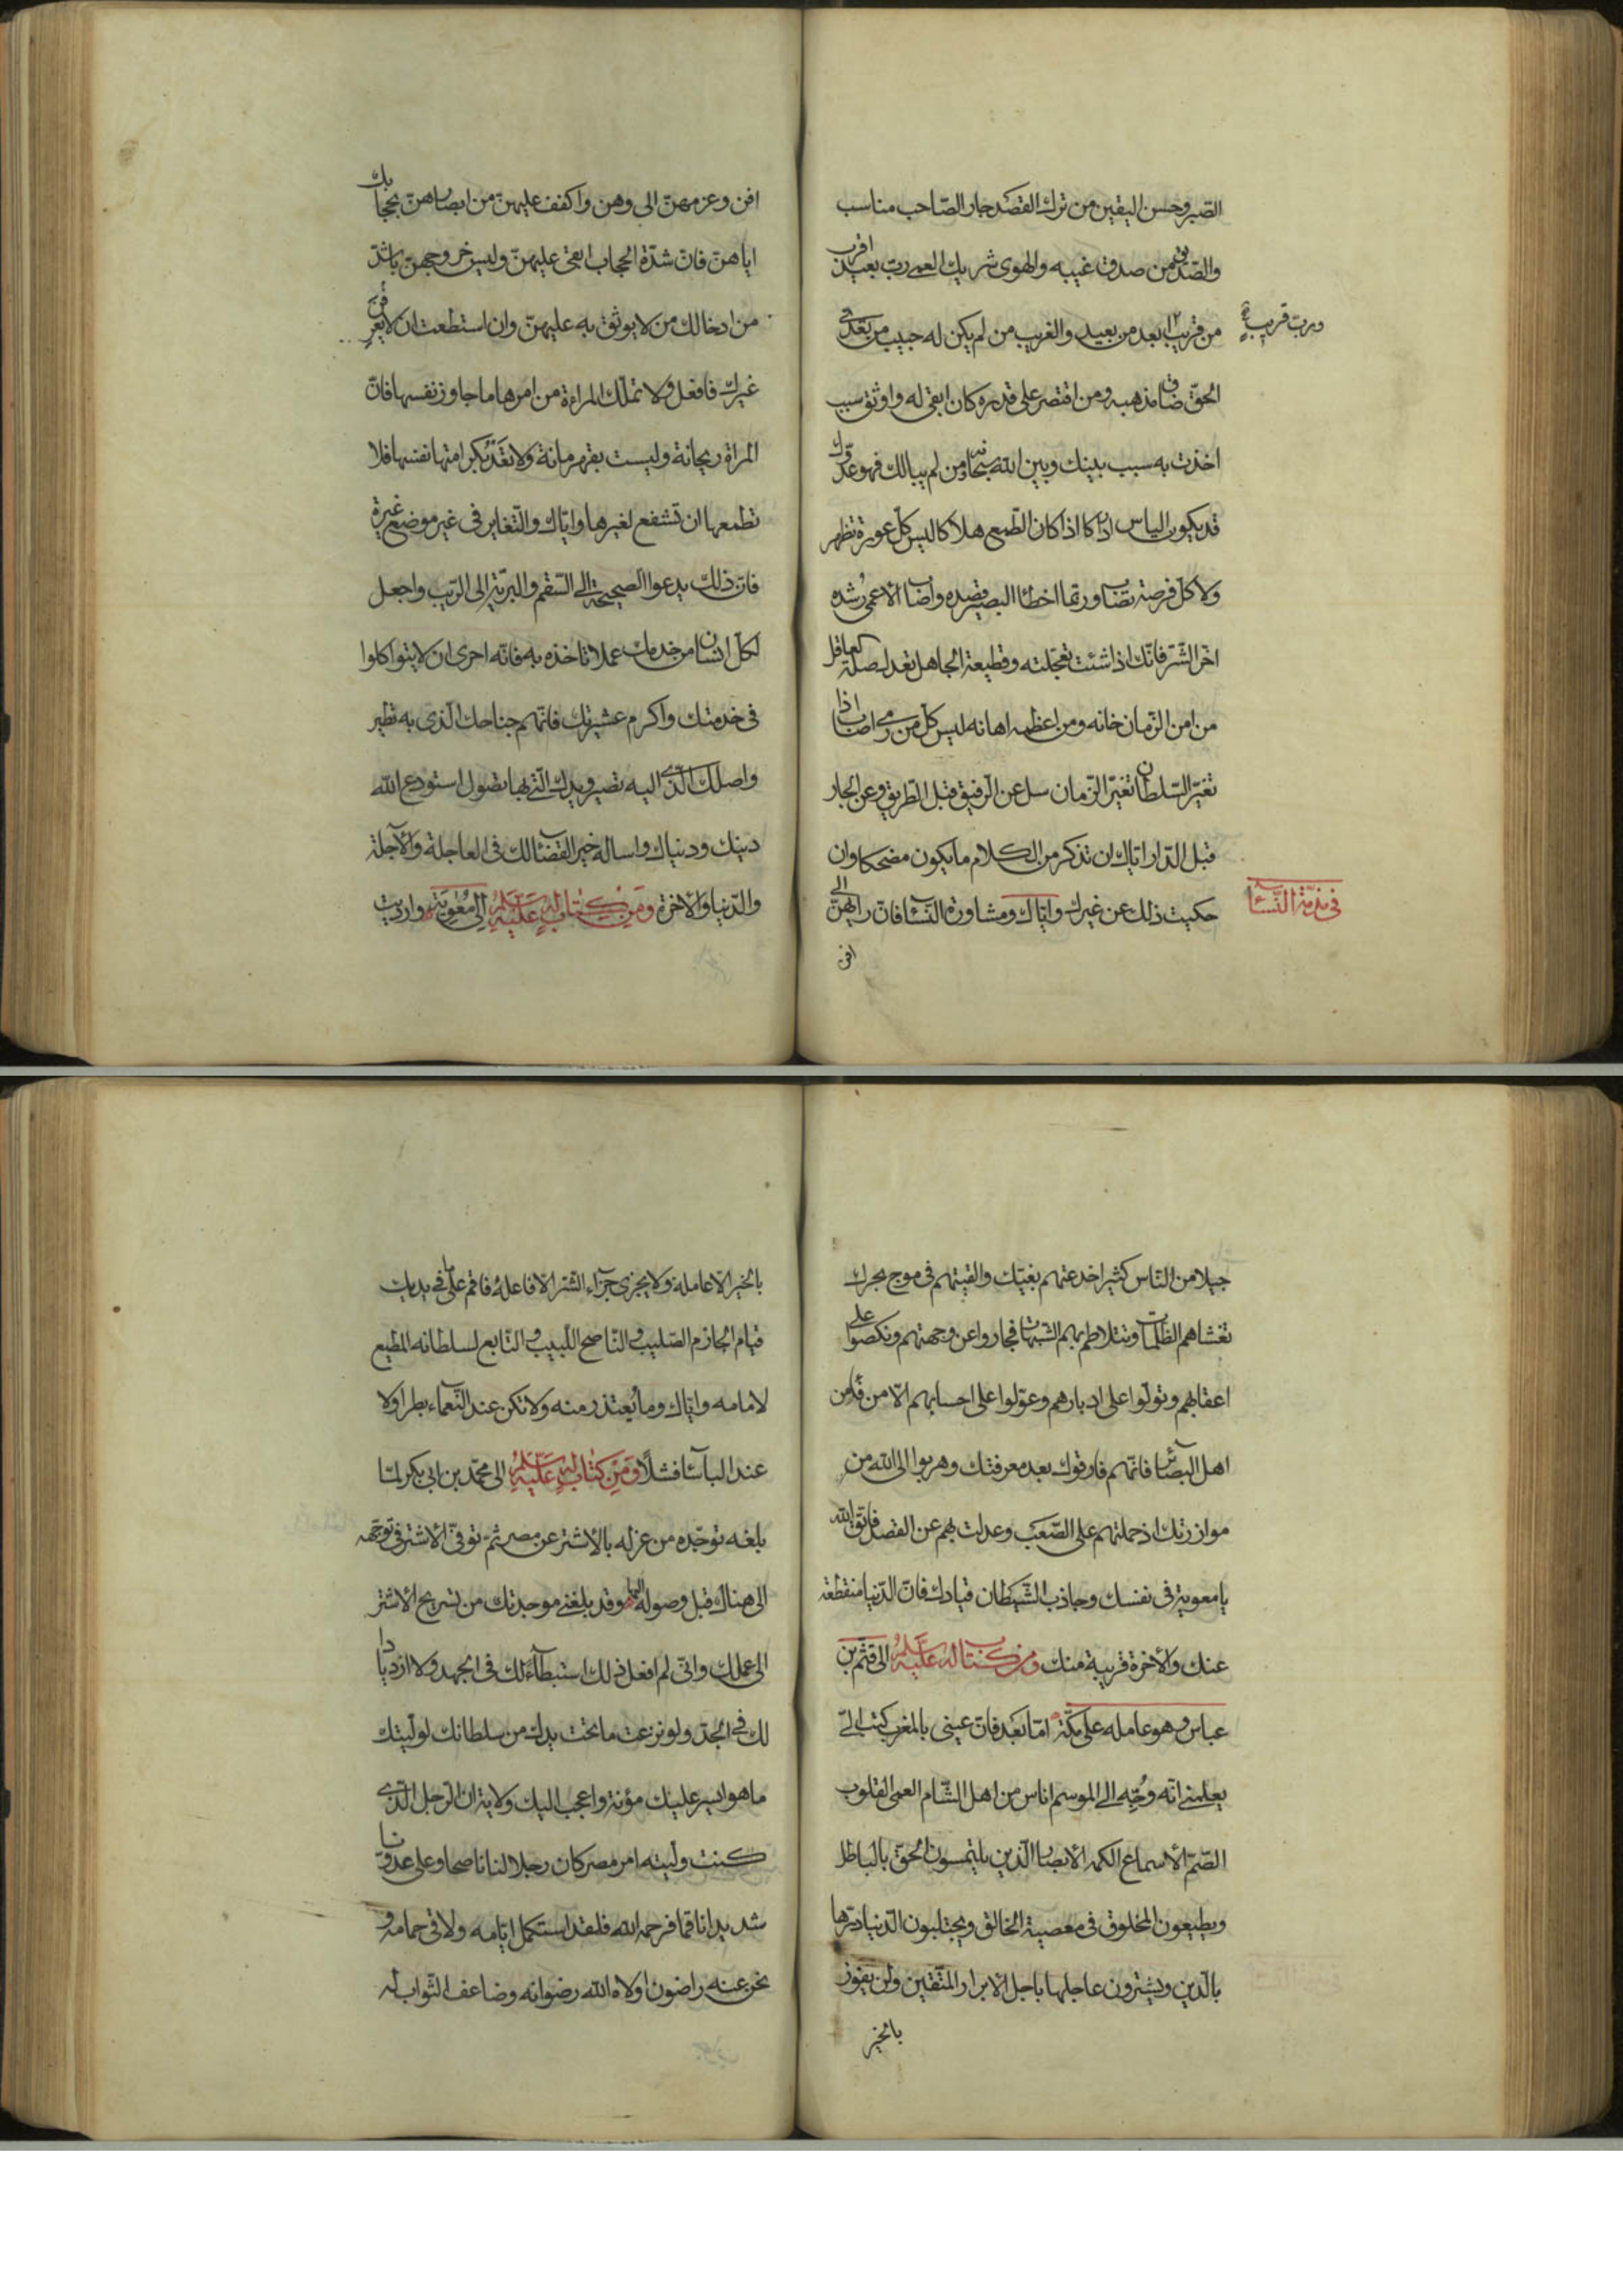 الصّبر وحسن اليقين من ترك القصد جار الصّاحب مناسب
والصّديق من صدق غيبه والهوى شريك العمى ربّ بعيد اقرب
من قريب ابعد من بعيد والغريب من لم يكن له حبيب من تعدّى
وربّ قريب
الحقّ ضاق مذهبه ومن اقتصر على قدره كان ابقى له واوثق سبب
اخذت به سبب بينك وبين الله سبحانه ومن لم يبالك فهو عدوّك
قد يكون الياس ادراكا اذا كان الطّمع هلاكا ليس كلّ عورة تظهر
ولا كلّ فرصة تصاب وربّما اخطا البصير قصده واصاب الاعمى رُشده
اخّر الشّرّ فانّك اذا شئت تعجّلته وقطيعة الجاهل تعدل صلة العاقل
من امن الزّمان خانه ومن اعظمه اهانه ليس كلّ من رمى اصاب اذا
تغيّر السّلطان تغيّر الزّمان سل عن الرّفيق قبل الطّريق وعن الجار
قبل الدّار ايّاك ان تذكر من الكلام ما يكون مضحكا وان
حكيت ذلك عن غيرك وايّاك ومشاورة النّساء فانّ رايهنّ الى
فى مذمّة النّساء
افن
افن وعزمهنّ الى وهن واكفف عليهنّ من ابصارهنّ بحجابك
اياهنّ فانّ شدّة الحجاب ابقى عليهنّ وليس خروجهنّ باشدّ
من ادخالك من لا يوثق به عليهنّ وان استطعت ان لا يعرفن
غيرك فافعل ولا تملّك المراءة من امرها ما جاوز نفسها فانّ
المراة ريحانة وليست بقهرمانة ولا تعد بكرامتها نفسها فلا
تطمعها ان تشفع لغيرها وايّاك والتّغاير فى غير موضع غيرة
فانّ ذلك يدعوا الصحيحة الى السّقم والبريّة الى الرّيب واجعل
لكلّ انسان من خدمك عملا تاخذه به فانّه احرى ان لا يتواكلوا
فى خدمتك واكرم عشيرتك فانّهم جناحك الّذى به تطير
واصلك الّذى اليه تصير ويدك الّتى بها تصول استودع الله
دينك ودنياك واساله خير القضاء لك فى العاجلة والآجلة
والدّنيا والاخرة ومن كتاب له عليه السلام الى معوية وارديت
جيلا من النّاس كثيرا خدعتهم بغيّك والقيتهم فى موج بحرك
تغشاهم الظّلمات وتتلاطم بهم الشّبهات فجاروا عن وجهتهم ونكصوا على
اعقابهم وتولّوا على ادبارهم وعوّلوا على احسابهم الّا من فاء من
اهل البصائر فانّهم فارقوك بعد معرفتك وهربوا الى الله من
موازرتك اذ حملتهم على الصّعب وعدلت بهم عن القصد فاتّق الله
يا معوية فى نفسك وجاذب الشّيطان قيادك فانّ الدّنيا منقطعة
عنك والاخرة قريبة منك ومن كتاب له عليه السلم الى قثم بن
عباس وهو عامله على مكّة امّا بعد فانّ عينى بالمغرب كتب الىّ
يعلمنى انّه وُجّه الى الموسم اناس من اهل الشّام العمى القلوب
الصّمّ الأسماع الكمه الأبصار الّذين يلتمسون الحقّ بالباطل
ويطيعون المخلوق فى معصية الخالق ويحتلبون الدّنيا درّها
بالّدين ويشترون عاجلها باجل الابرار المتّقين ولن يفوز
بالخير
بالخير الّا عامله ولا يجزى جزاء الشّر الّا فاعله فاقم على ما فى يديك
قيام الحازم الصّليب والنّاصح اللّبيب والتّابع لسلطانه المطيع
لامامه وايّاك وما يُعتذر منه ولا تكن عند النّعماء بطرا ولا
عند الباساء فشلا ومن كتاب له عليه السلم الى محمّد بن ابى بكر لمّا
بلغه توجّده من عزله بالأشتر عن مصر ثمّ توفّى الاشتر فى توجّهه
الى هناك قبل وصوله اليها وقد بلغنى موجدتك من تسريح الاشتر
الى عملك وانّى لم افعل ذلك استبطاءً لك فى الجهد ولا ازديادا
لك فى الجدّ ولو نزعت ما تحت يدك من سلطانك لولّيتك
ما هو ايسر عليك مؤنة واعجب اليك ولاية ان الرّجل الّذى
كنت ولّيته امر مصر كان رجلا لنا ناصحا وعلى عدوّنا
شديدا ناقما فرحمه الله فلقد استكمل ايّامه ولاقى حمامه و
نحن عنه راضون اولاه الله رضوانه وضاعف الثّواب له